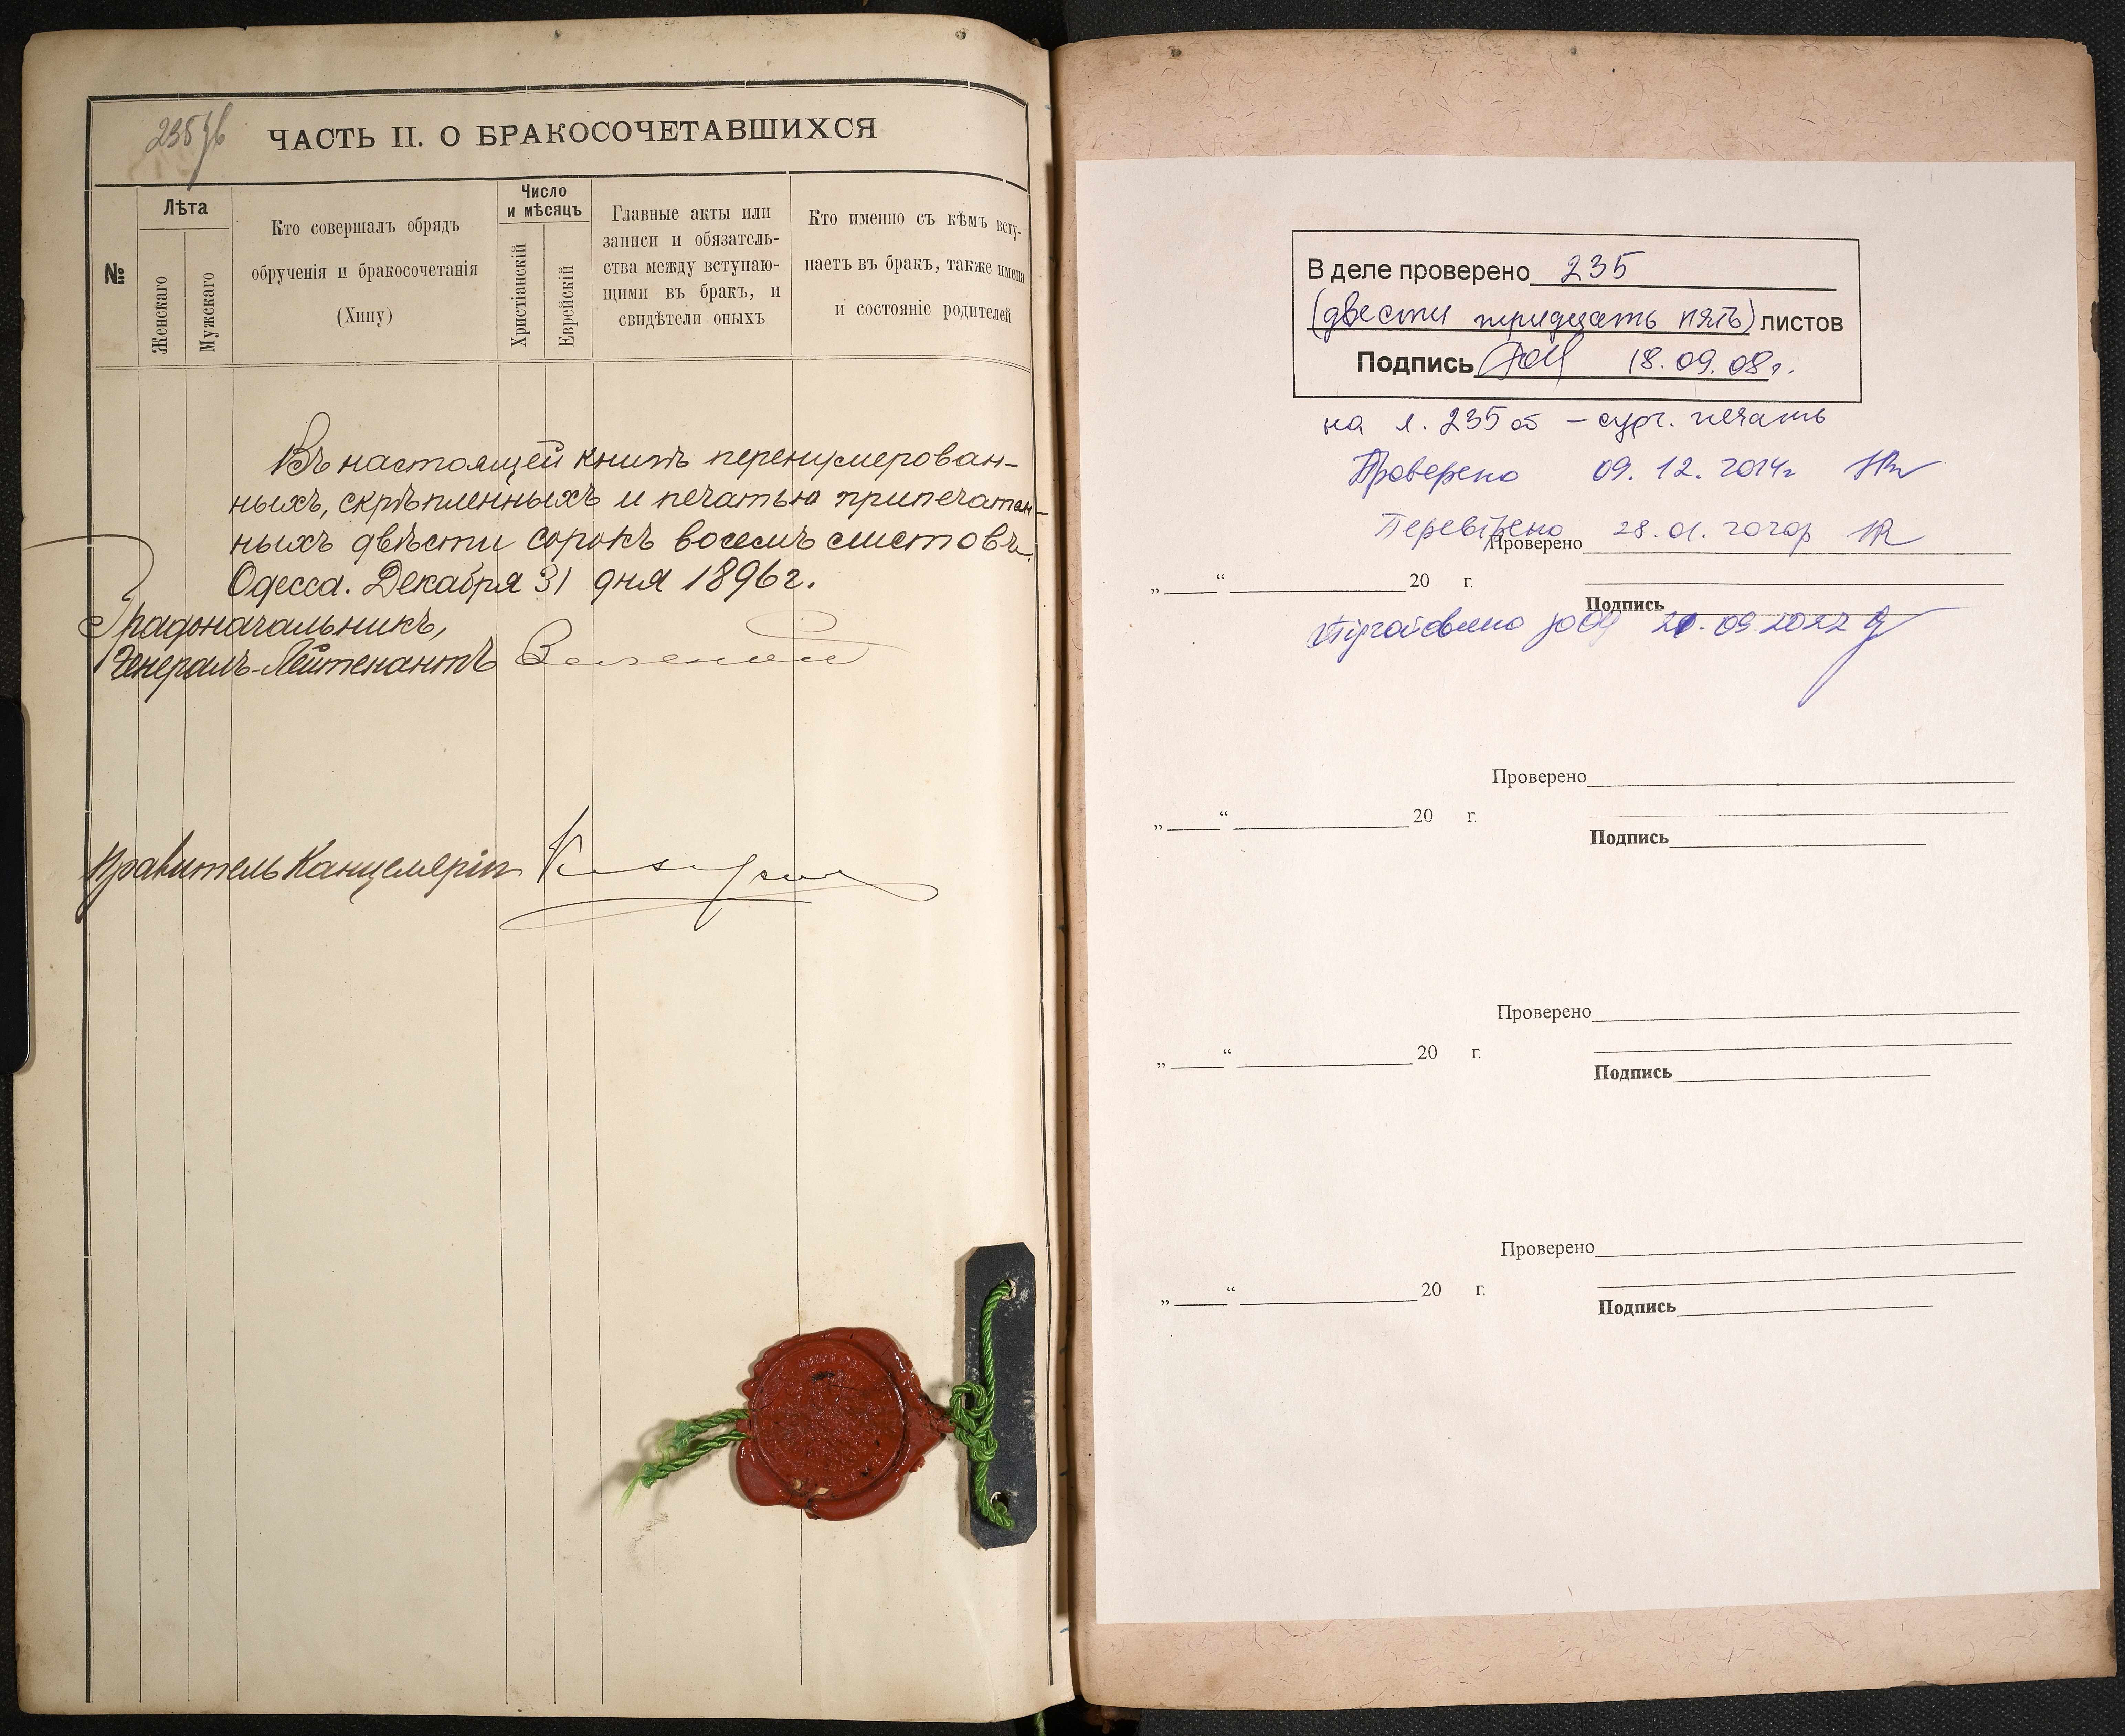 235 об
ЧАСТЬ II. О БРАКОСОЧЕТАВШИХСЯ
№
Лѣта
Женскаго
Мужскаго
Кто совершалъ обрядъ
обрученія и бракосочетанія
(Хипу)
Число
и мѣсяцъ
Христіанскій
Еврейскій
Главные акты или
записи и обязатель-
ства между вступаю-
щими въ бракъ, и
свидѣтели оныхъ
Кто именно съ кѣмъ всту-
паетъ въ бракъ, также имена
и состояніе родителей
Въ настоящей книгѣ перенумерован-
ныхъ, скрѣпленныхъ и печатью припечатан-
ныхъ двѣсти сорокъ восемь листовъ.
Одесса. Декабря 31 дня 1896 г.
Градоначальникъ,
Генералъ-Лейтенантъ Зеленой
Правитель Канцеляріи
В деле проверено 235
(двести тридцать пять) листов
Подпись 18.09.08г.
на л. 235 об – сург. печать
Проверено 09.12.2014г
Перевірено 28.01.2020р
Проверено
„ “ 20 г.
Подпись
21.09.2022
Проверено
„ “ 20 г.
Подпись
Проверено
„ “ 20 г.
Подпись
Проверено
„ “ 20 г.
Подпись